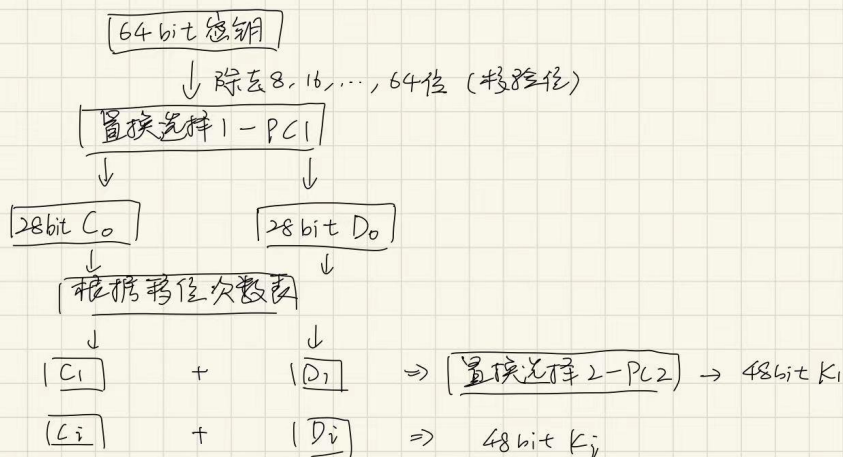 64bit密钥
除去8,16,...,64位（校验位）
置换选择1-PC1
28bit C₀ 28bit D₀
根据移位次数表
C₁ + D₁ ⇒ 置换选择2-PC2 → 48bit K₁
Cᵢ + Dᵢ ⇒ 48bit Kᵢ